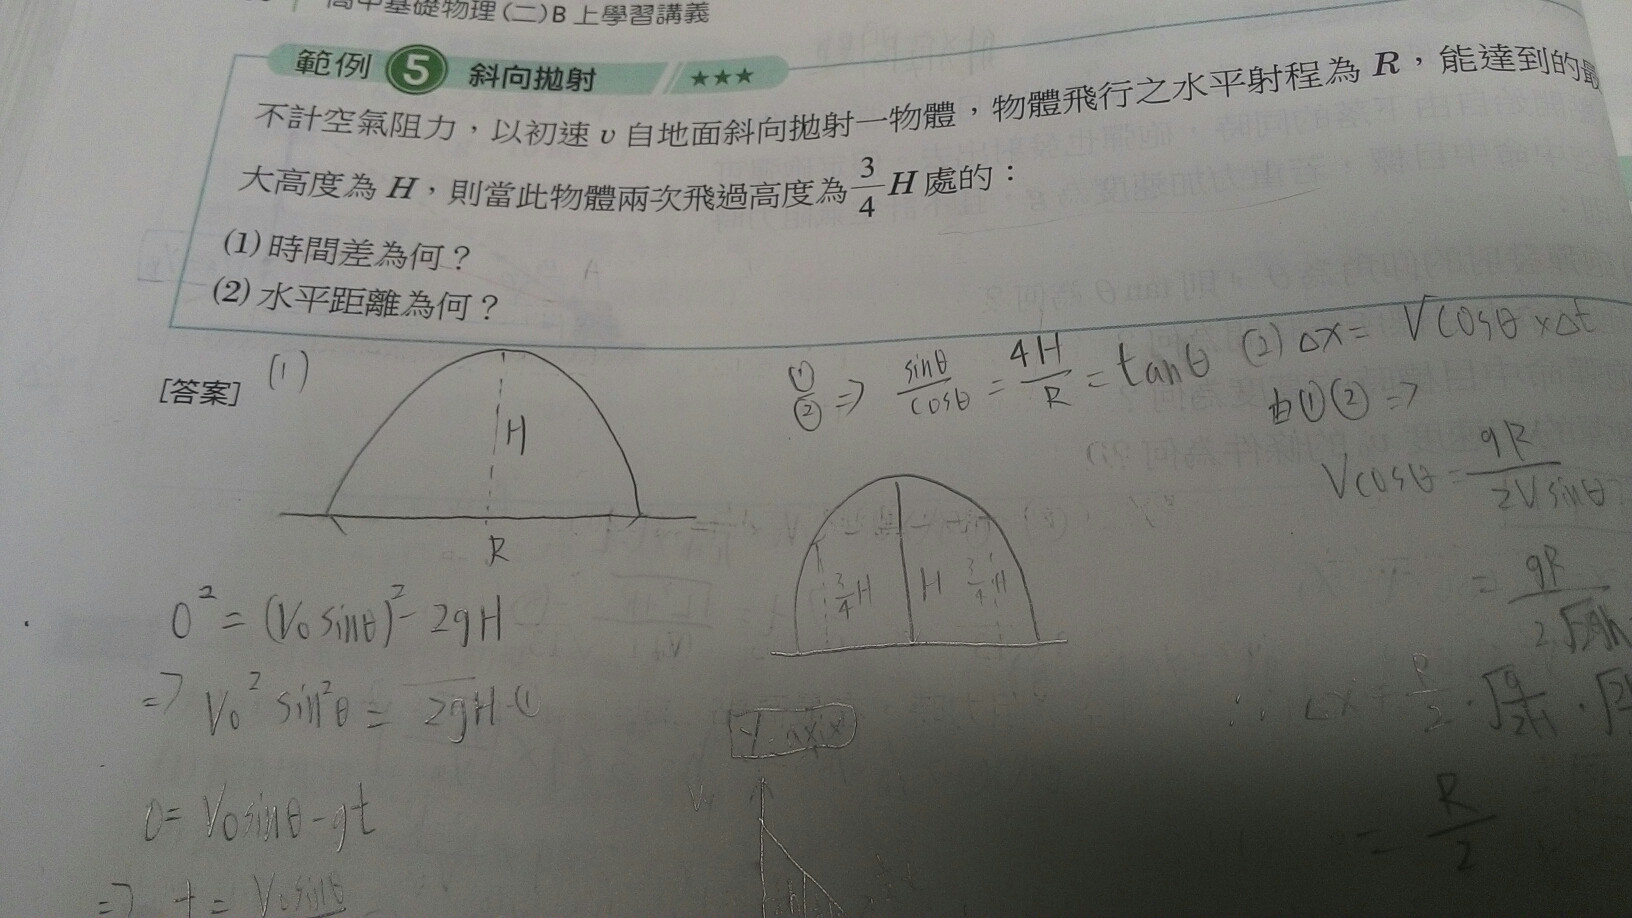 高中基礎物理(二)B上學習講義
範例 5 斜向拋射 ★★★
不計空氣阻力，以初速 v 自地面斜向拋射一物體，物體飛行之水平射程為 R，能達到的最
大高度為 H，則當此物體兩次飛過高度為 3/4 H 處的：
(1) 時間差為何？
(2) 水平距離為何？
[答案] (1)
H
R
0² = (V₀ sinθ)² - 2gH
⇒ V₀² sin²θ = 2gH ①
0 = V₀ sinθ - gt
⇒ t = V₀ sinθ
①/② ⇒ sinθ/cosθ = 4H/R = tanθ
3/4 H
H
3/4 H
Vy
(2) Δx = V cosθ × Δt
由①② ⇒
V cosθ = gR/2V sinθ
= gR
∴ Δx = R/2 · √g/2H ·
= R/2